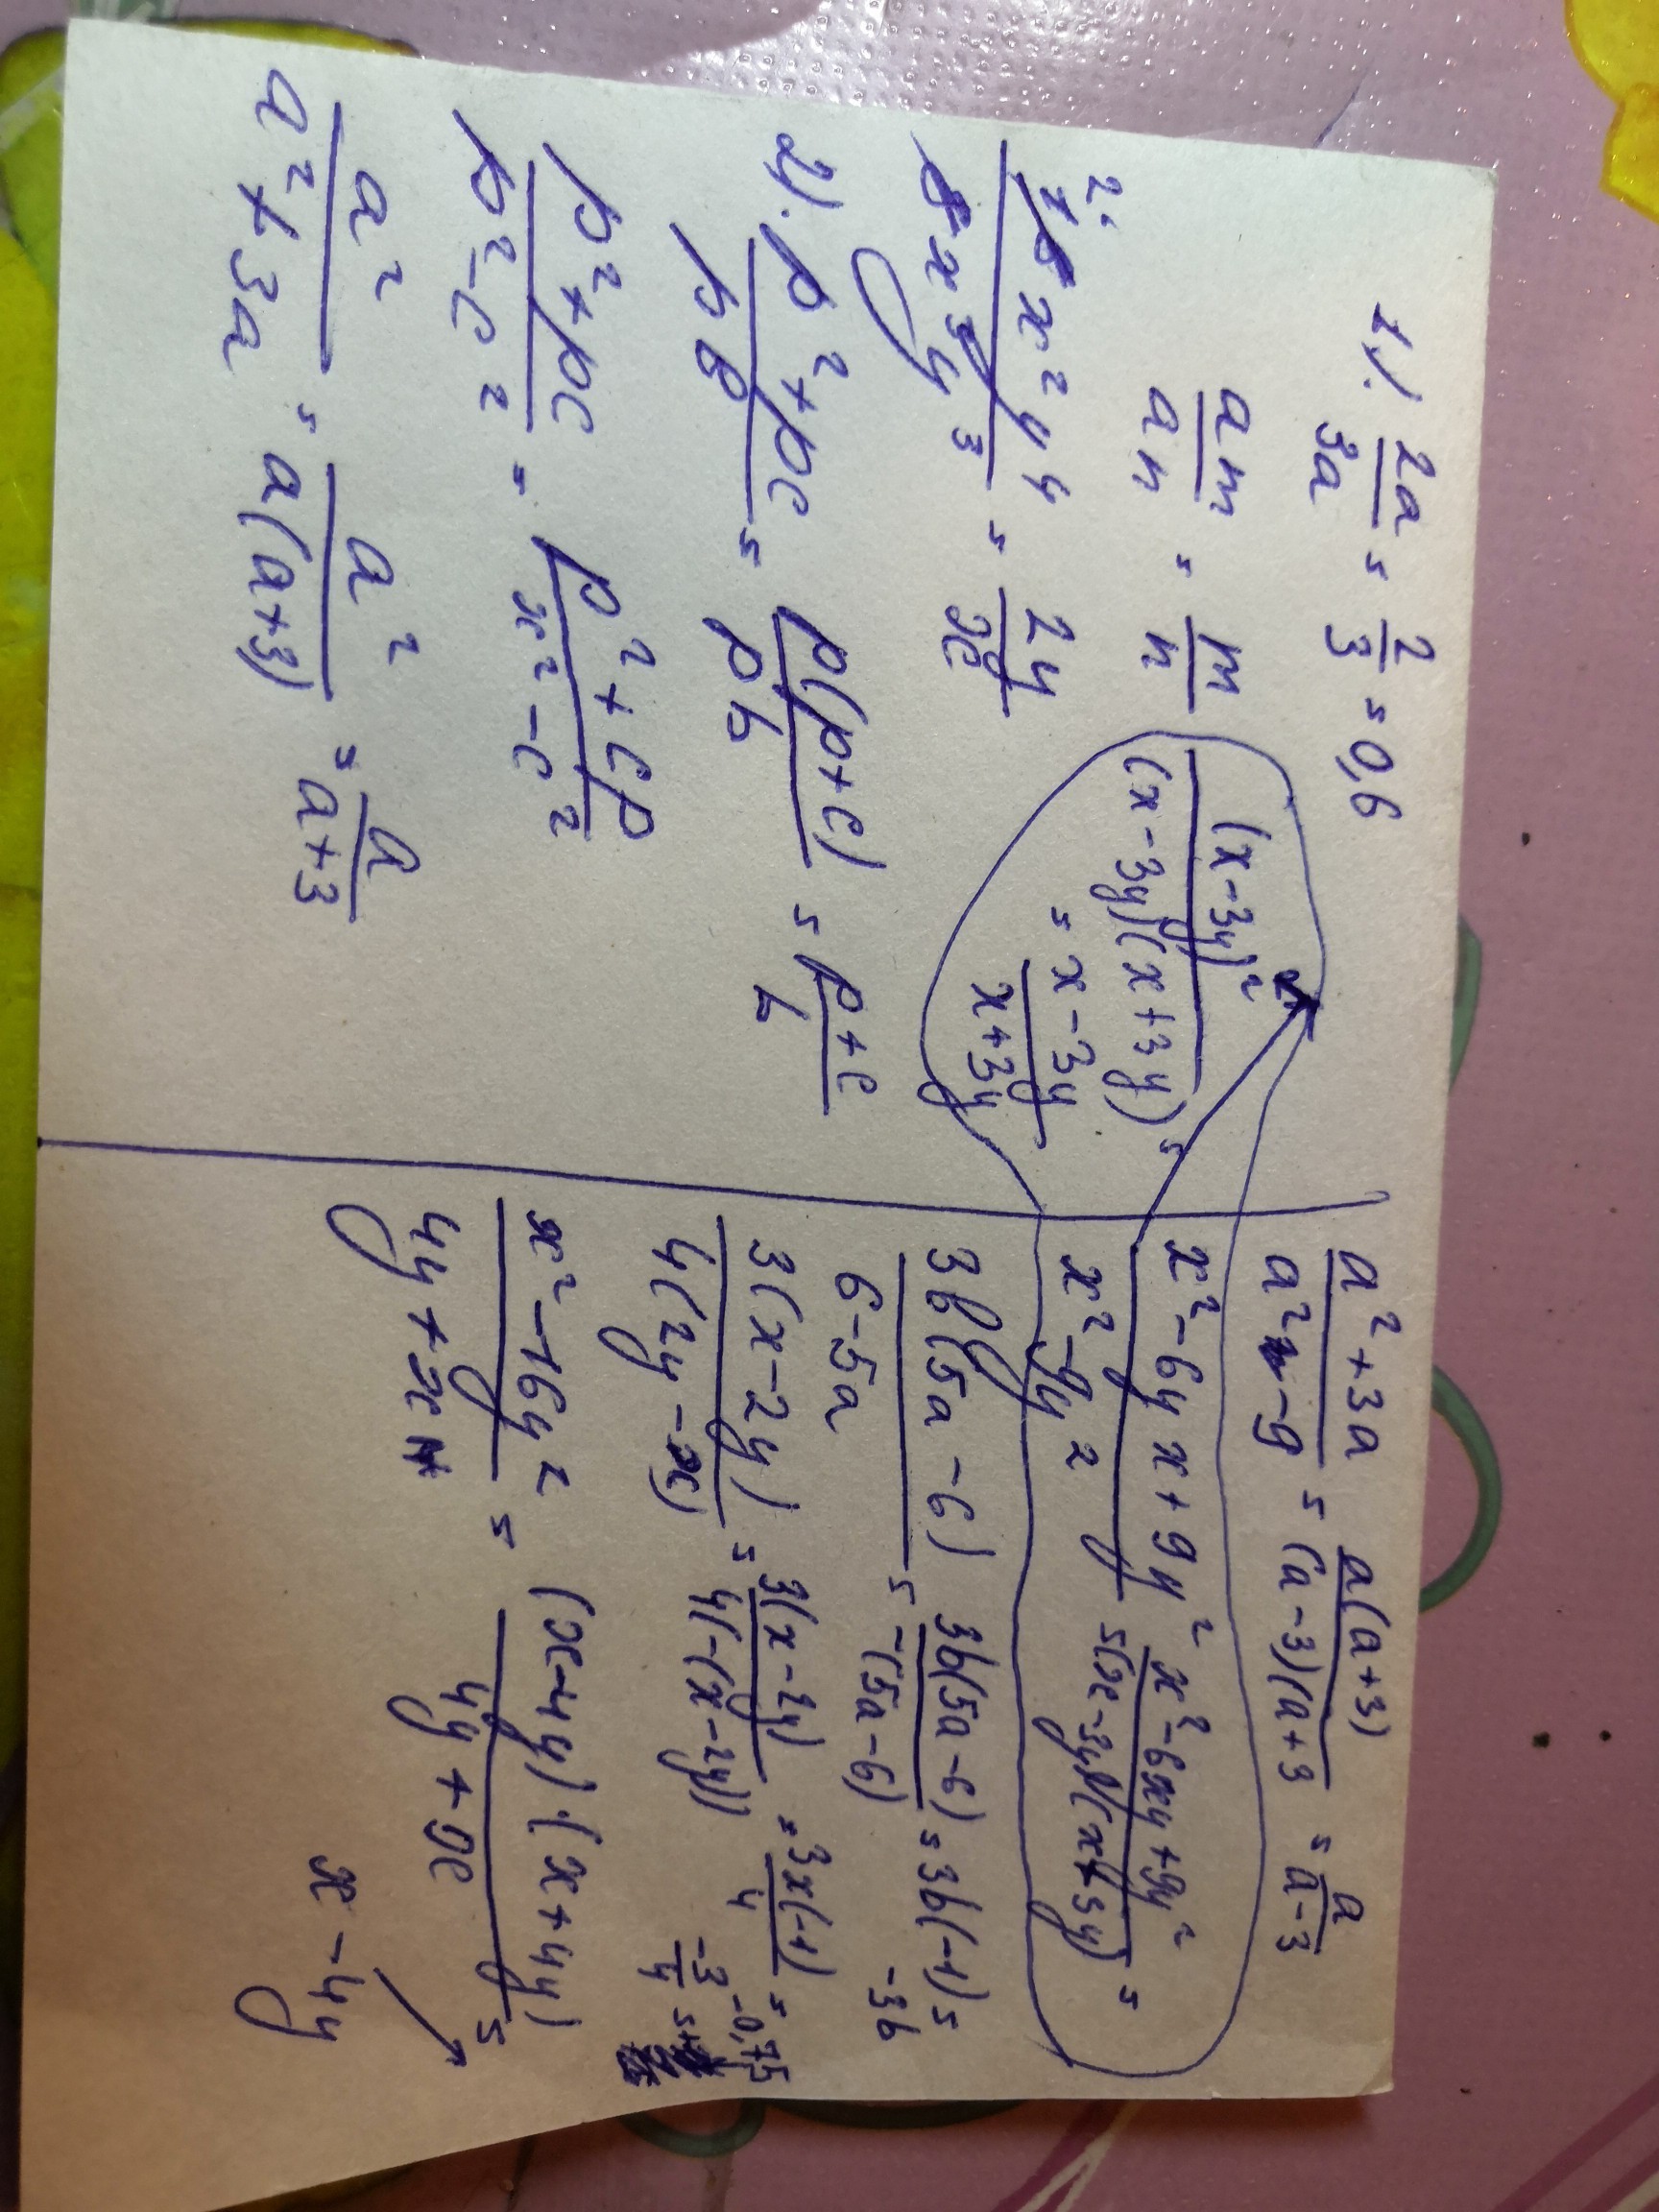 1). 2a/3a = 2/3 = 0,6
am/an = m/n
x²y⁴ = 2y/x
2). p²+pc = p(p+c)/pb = p+c/b
p²+pc/p²-c² = p²+cp/x²-c²
a²/a²+3a = a²/a(a+3) = a/a+3
(x-3y)²/(x-3y)(x+3y) =
= x-3y/x+3y
a²+3a/a²-9 = a(a+3)/(a-3)(a+3 = a/a-3
x²-6yx+9y²/x²-9y² = x²-6xy+9y²/(x-3y)(x+3y) =
3b(5a-6)/6-5a = 3b(5a-6)/-(5a-6) = 3b(-1) = -3b
3(x-2y)/4(2y-x) = 3(x-2y)/4(-(x-2y)) = 3x(-1)/4 = -0,75
-3/4 =
x²-16y²/4y+x = (x-4y)·(x+4y)/4y+x =
x-4y